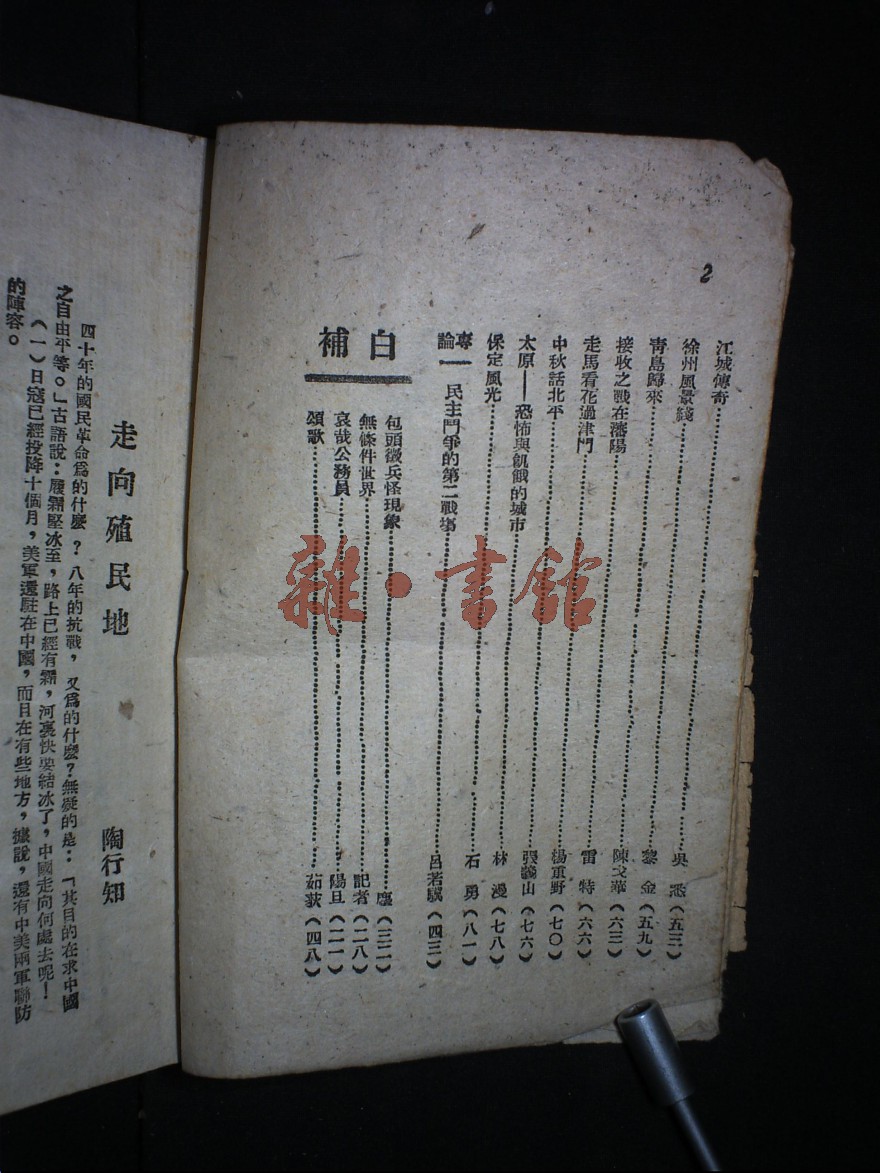 2
江城傳奇……吳 (五三)
徐州風景綫……黎 金(五九)
青島歸來……陳戈華(六三)
接收之戰在瀋陽……雷 特(六六)
走馬看花過津門……楊重野(七〇)
中秋話北平……張義山(七六)
太原——恐怖與飢餓的城市……林 漫(七八)
保定風光……石 勇(八一)
專論一 民主鬥爭的第二戰場……呂若驥(四三)
補白
包頭徵兵怪現象……塵(三二)
無條件世界……記者(二八)
哀哉公務員……陽旦(二一)
頌歌……茹荻(四八)
走向殖民地
陶行知
四十年的國民革命爲的什麼?八年的抗戰,又爲的什麼?無疑的是:「其目的在求中國
之自由平等。」古語說:履霜堅冰至,路上已經有霜,河裏快要結冰了,中國走向何處去呢!
(一)日寇已經投降十個月,美軍還駐在中國,而且在有些地方,據說,還有中美兩軍聯防
的陣容。
雜·書館